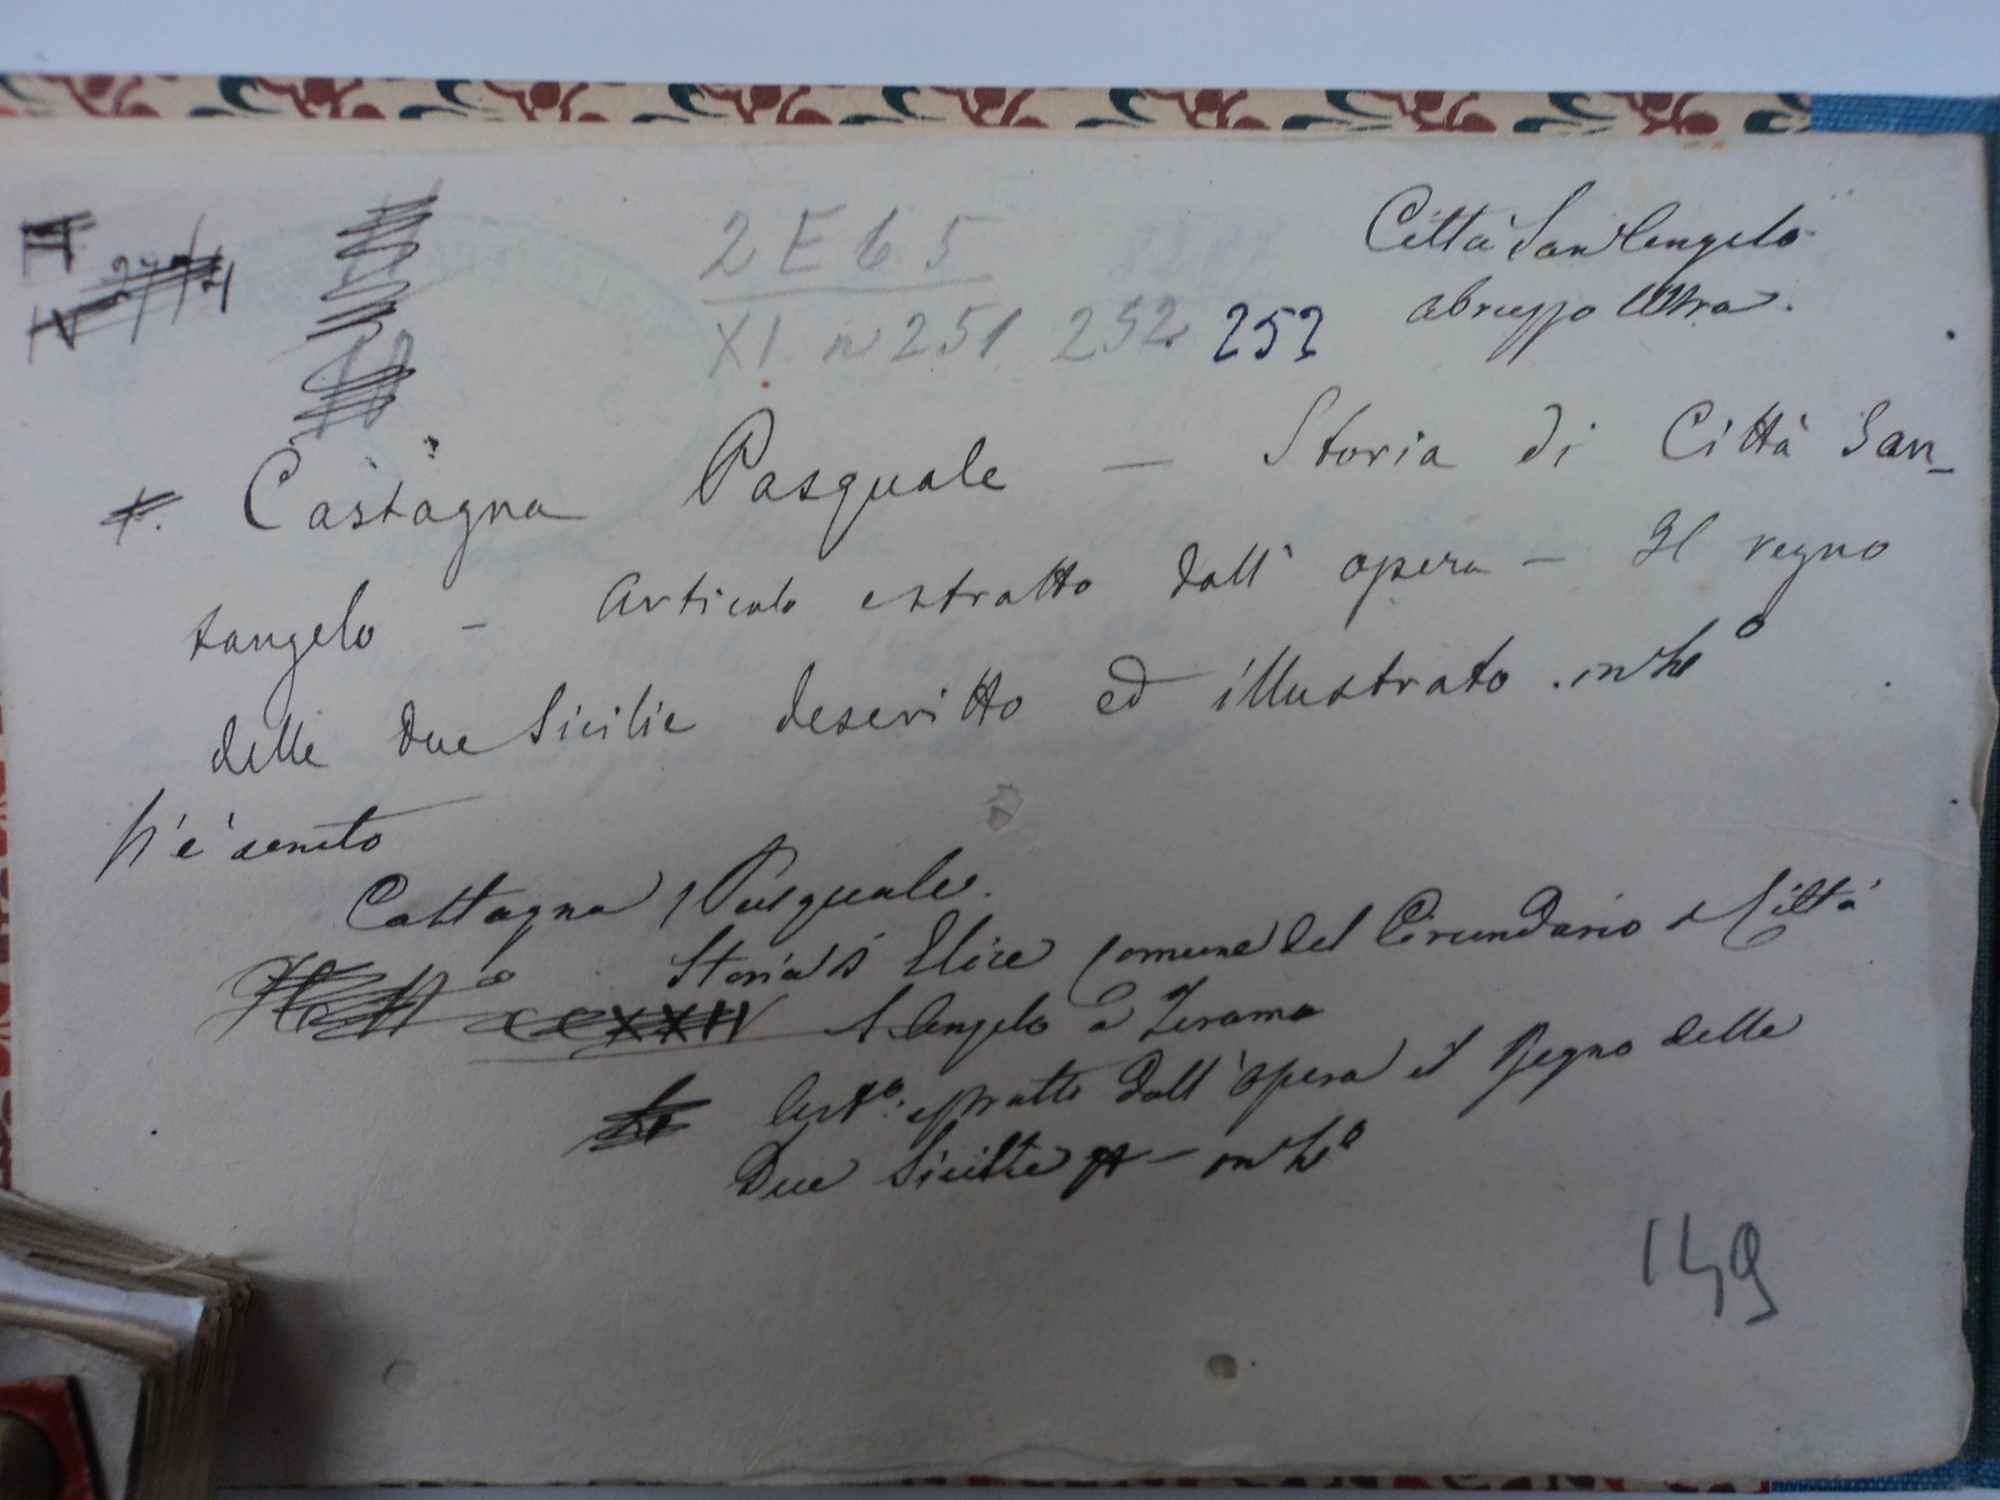 Città San Angelo
abruzzo Ultra.
2 E 65
XI n 251 252 253
Castagna Pasquale — Storia di Città San-
tangelo — Articolo estratto dall' opera — Il regno
delle due Sicilie descritto ed illustrato. in
N'è unito
Castagna Pasquale.
Storia di Elice comune del Circundario di Città
S. Angelo a Teramo
Art°. estratto dall'opera il Regno delle
Due Sicilie — in
149